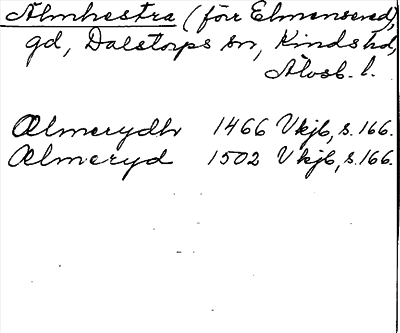 Älmhestra (förr Elmensered),
gd, Dalstorps sn, Kinds hd,
Älvsb. l.
Ælmerydh 1466 Vkjb, s. 166.
Ælmeryd 1502 Vkjb, s. 166.